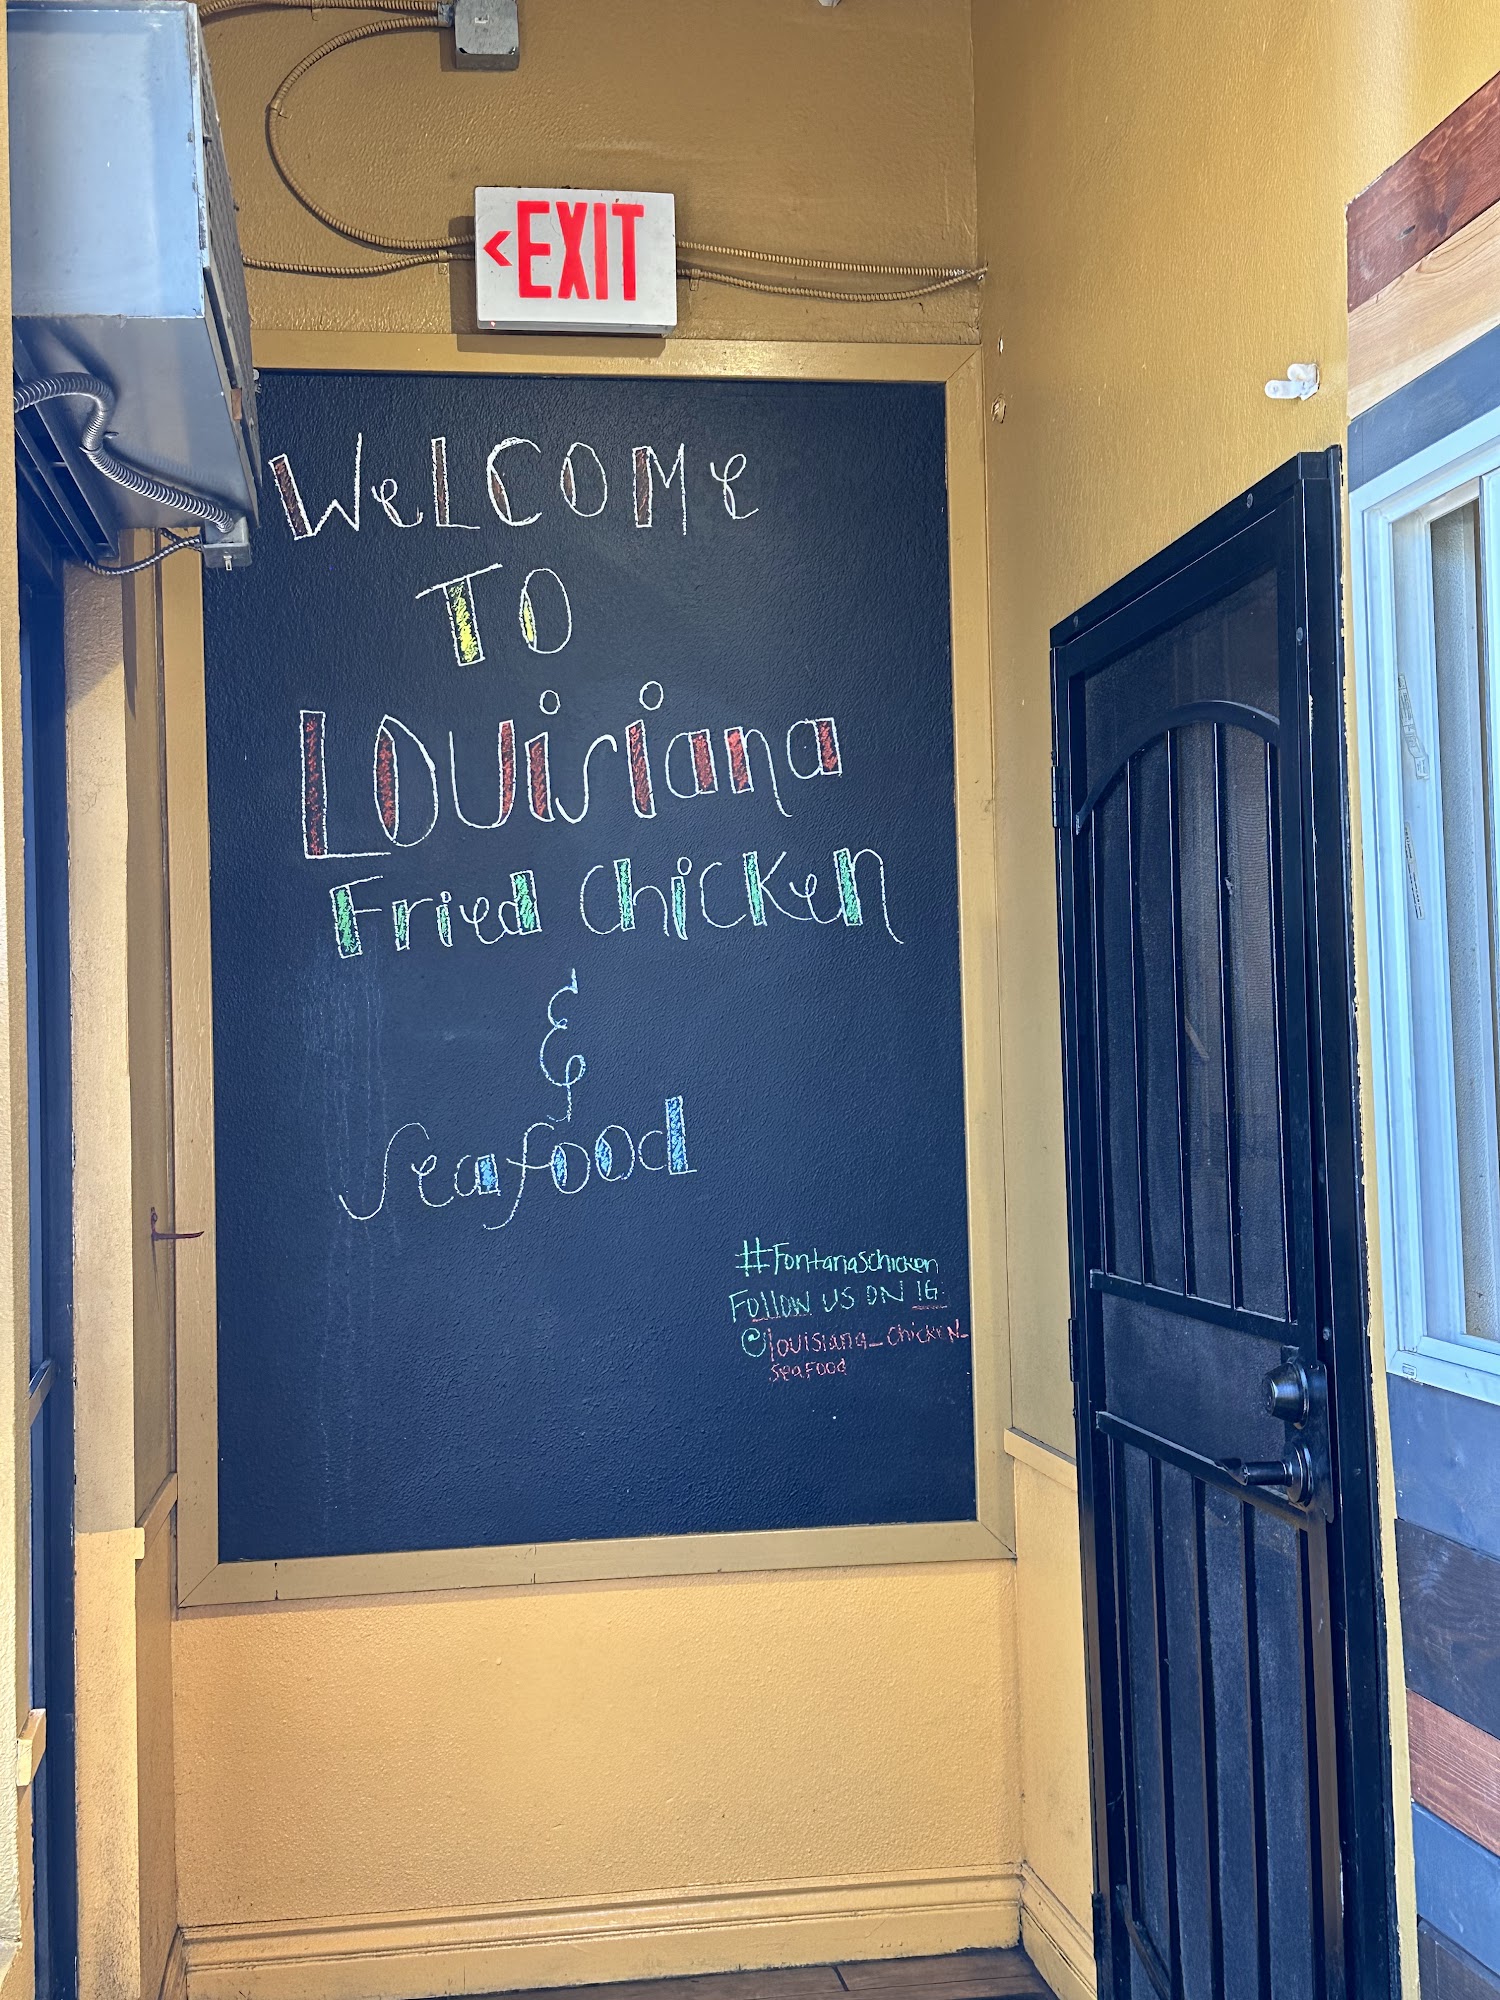 <EXIT
WeLCOMe
TO
LOUisiana
Fried Chicken
&
Seafood
#Fontanaschicken
FOLLOW US ON IG:
@louisiana_chicken_
seafood